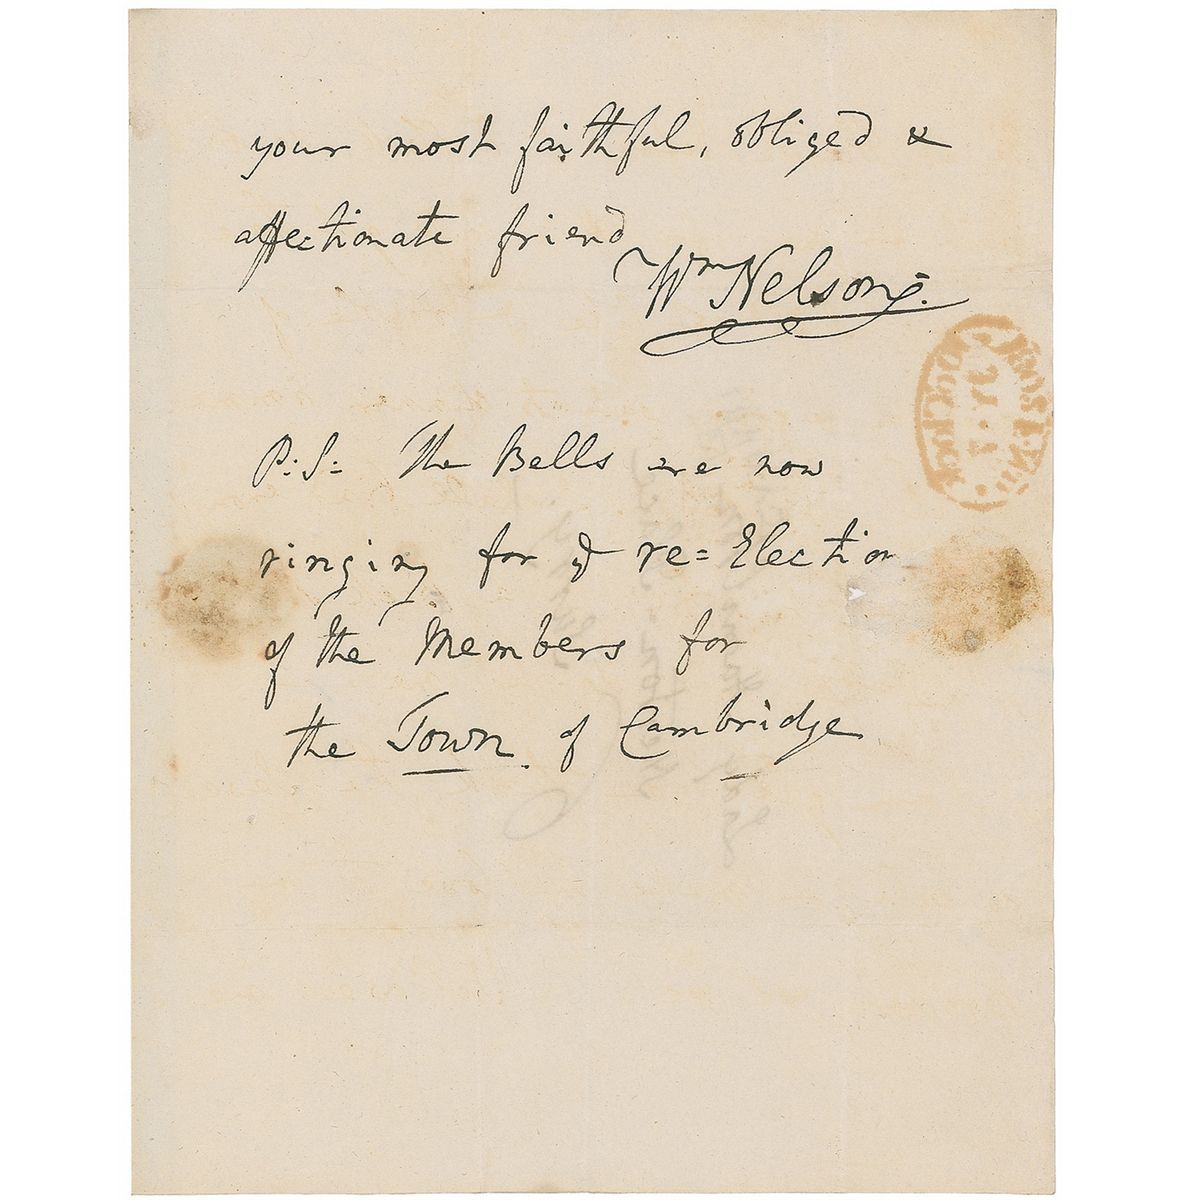 your most faithful, obliged &
affectionate friend
Wm Nelson.
P:S: The Bells are now
ringing for ye re=Election
of the Members for
the Town of Cambridge